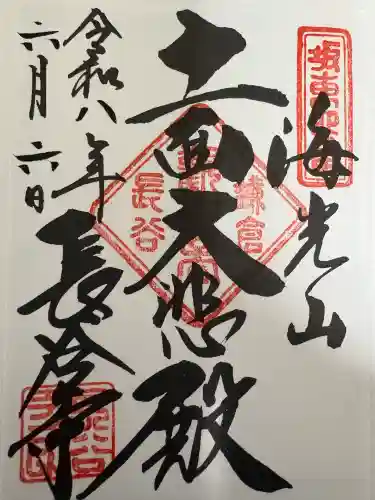 坂東四番
海光山
十一面大悲殿
鎌倉
長谷
令和八年
六月六日
長谷寺